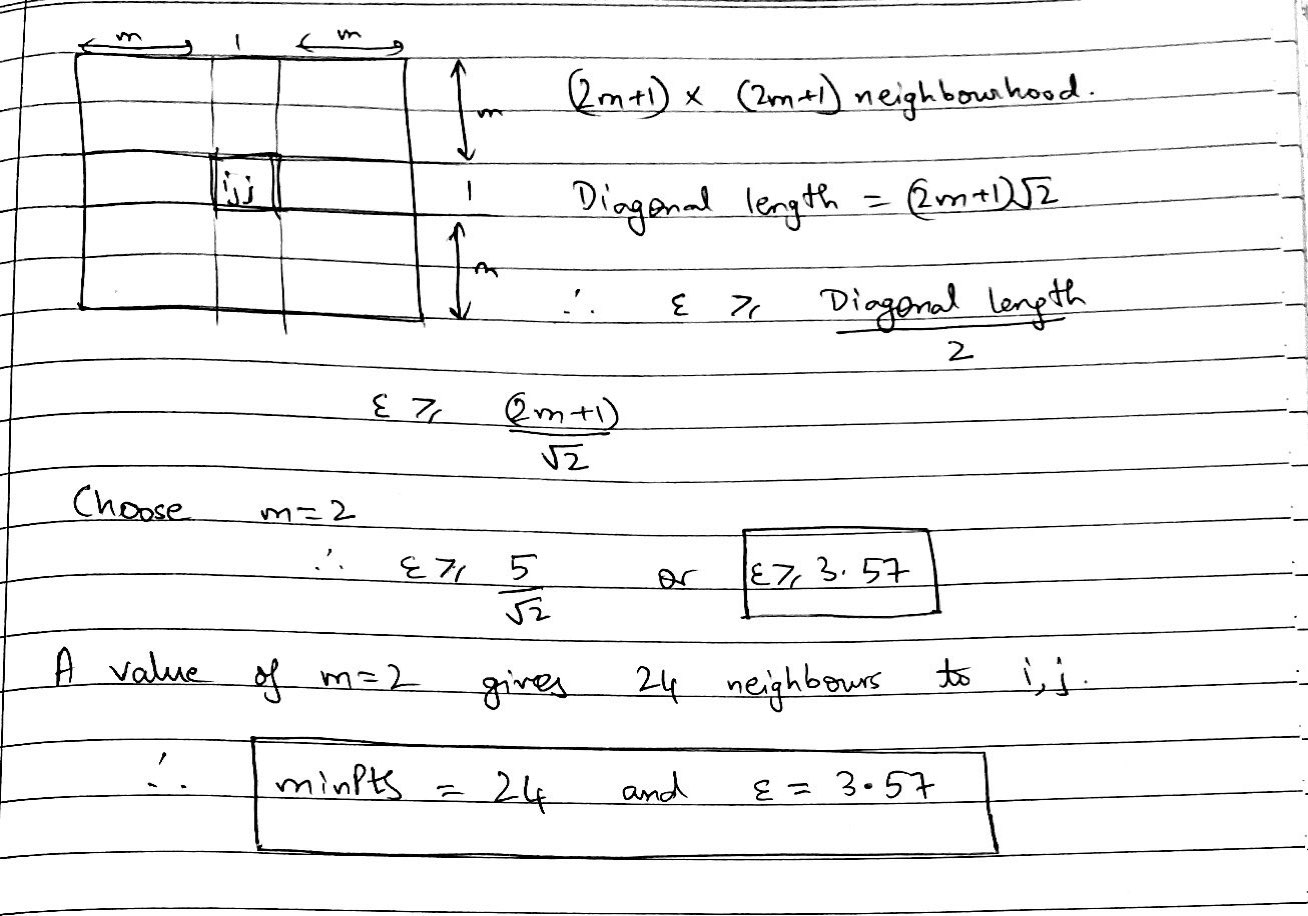 m 1 m
(2m+1) x (2m+1) neighbourhood.
m
i,j
1
Diagonal length = (2m+1)√2
m
∴ ε ≥ Diagonal length / 2
ε ≥ (2m+1) / √2
Choose m=2
∴ ε ≥ 5 / √2 or ε ≥ 3.57
A value of m=2 gives 24 neighbours to i,j.
∴ minPts = 24 and ε = 3.57